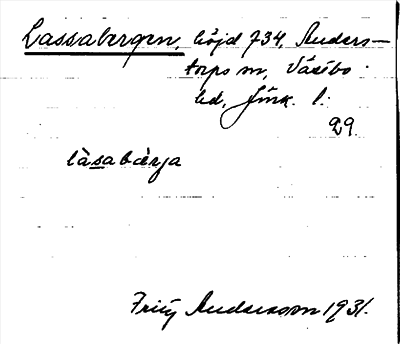 Lassabergen, höjd 734, Anders-
torps sn, Västbo
hd, Jönk. l.
29
làsabærja
Fritz Andersson 1931.